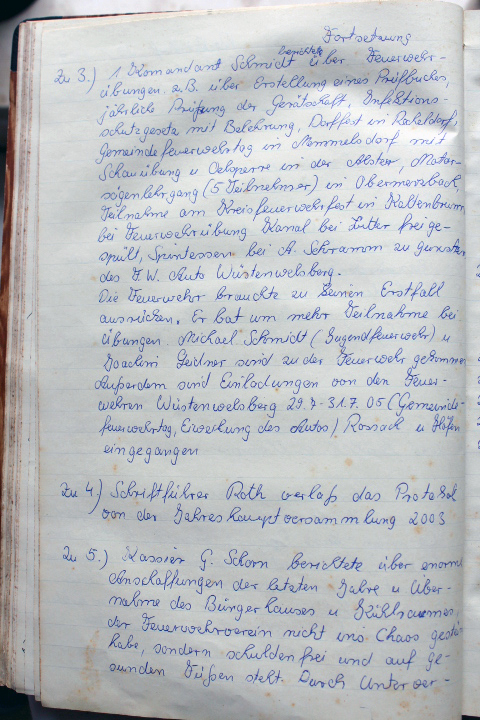 Fortsetzung
Zu 3.) 1. Komandant Schmidt berichtete über Feuerwehr-
übungen z.B. über Erstellung eines Prüfbuches,
jährliche Prüfung der Gerätschaft, Infektions-
schutzgesetz mit Belehrung, Dorffest in
Gemeindefeuerwehrtag in Memmelsdorf mit
Schauübung u Oelsperre in der Alster, Motor-
sägenlehrgang (5 Teilnehmer) in Obermerzbach,
Teilnahme am Kreisfeuerwehrfest in Kaltenbrunn
bei Feuerwehrübung Kanal bei frei ge-
spült, Spintessen bei A. Schramm zu
des F.W. Auto Wüstenwelsberg.
Die Feuerwehr brauchte zu keinen Ernstfall
ausrücken. Er bat um mehr Teilnahme bei
Übungen. Michael Schmidt (Jugendfeuerwehr) u
Joachim Geidner sind zu der Feuerwehr gekommen
Außerdem sind Einlodungen von den Feuer-
wehren Wüstenwelsberg 29.7-31.7.05 (Gemeinde-
feuerwehrtag, Eiweihung des Autos), Rossach u Höfen
eingegangen
Zu 4.) Schriftführer Roth verlaß das Protokol
von der Jahreshauptversammlung 2003
Zu 5.) Kassier G. Schorn berichtete über enorme
Anschaffungen der letzten Jahre u Über-
nahme des Bürgerhauses u Kühlraumes,
der Feuerwehrverein nicht ins Chaos
habe, sondern schuldenfrei und auf ge-
sunden Füßen steht. Durch Unterver-